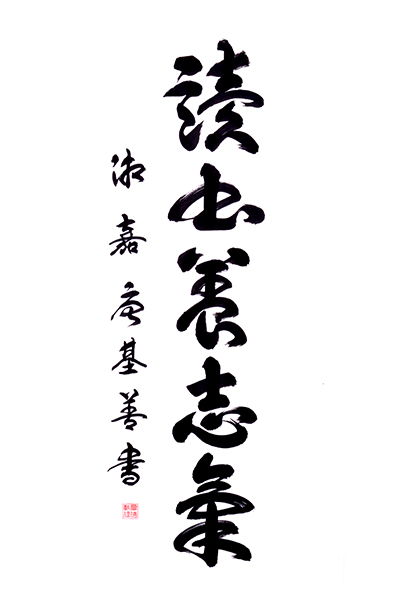 讀書養志氣
湘嘉唐基善書